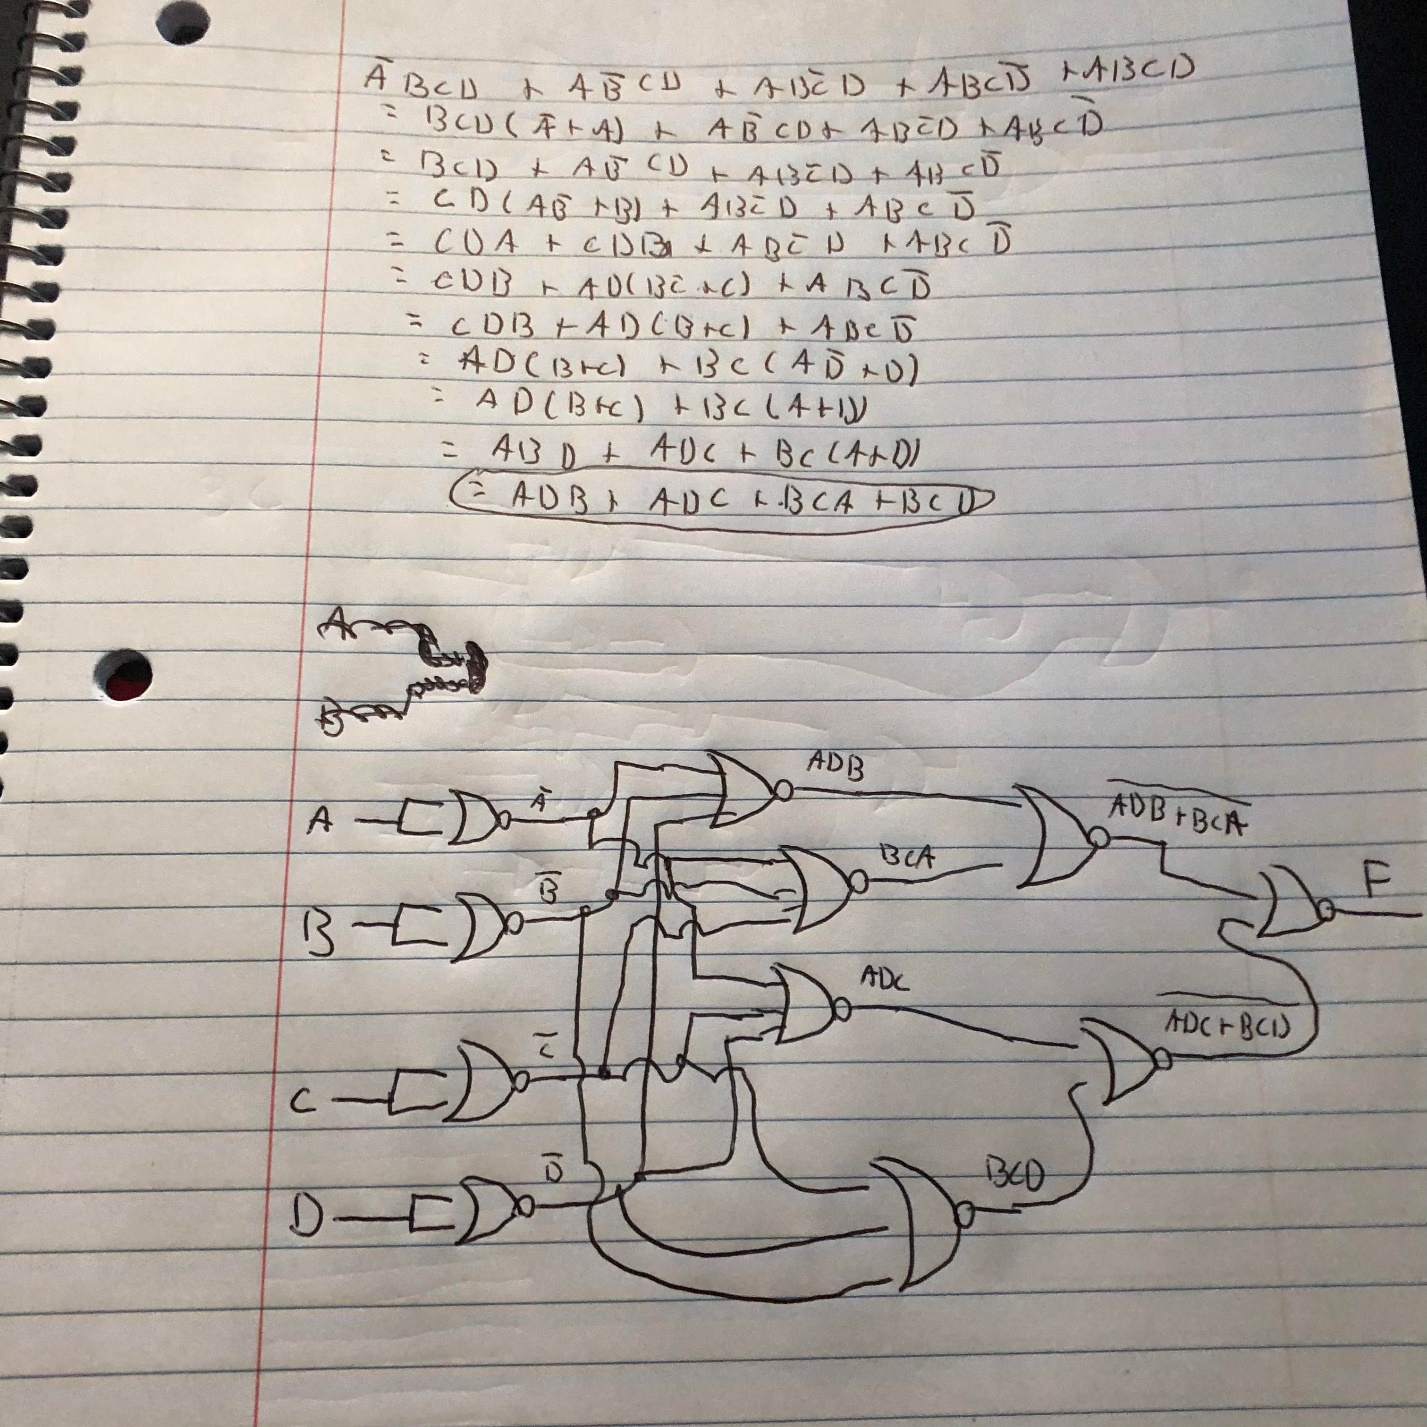 A̅BCD + AB̅CD + ABC̅D + ABCD̅ + ABCD
= BCD(A̅+A) + AB̅CD + ABC̅D + ABCD̅
= BCD + AB̅CD + ABC̅D + ABCD̅
= CD(AB̅+B) + ABC̅D + ABCD̅
= CDA + CDB + ABC̅D + ABCD̅
= CDB + AD(BC̅+C) + ABCD̅
= CDB + AD(B+C) + ABCD̅
= AD(B+C) + BC(AD̅+D)
= AD(B+C) + BC(A+D)
= ABD + ADC + BC(A+D)
= ADB + ADC + BCA + BCD
A
B
ADB
A A̅ A̅D̅B̅+̅B̅C̅A̅
BCA
B B̅ F
ADC
C C̅ A̅D̅C̅+̅B̅C̅D̅
D D̅ BCD